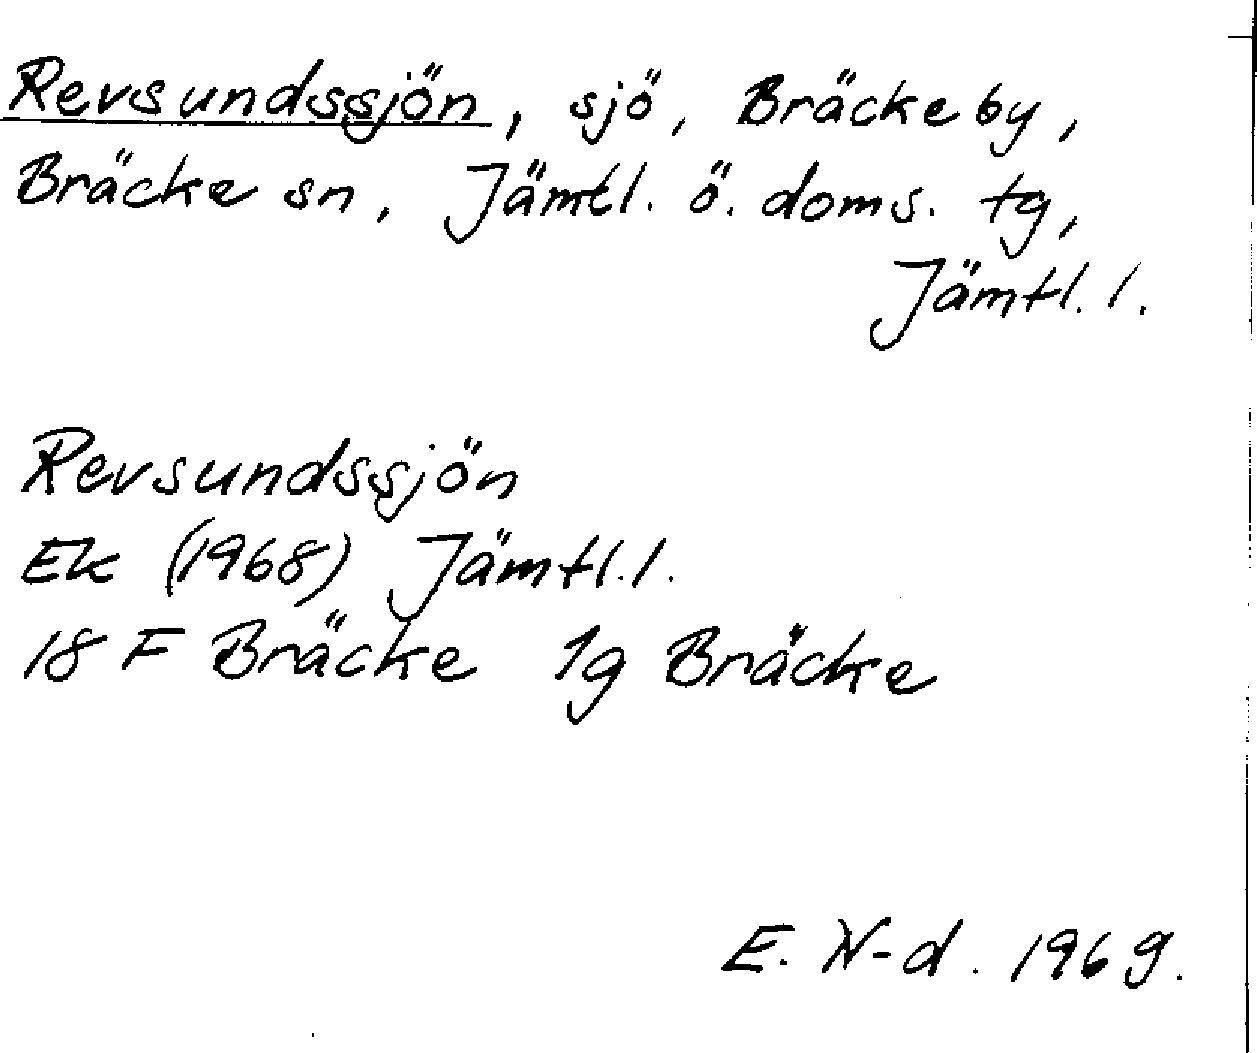 Revsundssjön, sjö, Bräcke by,
Bräcke sn, Jämtl. ö. doms. tg,
Jämtl. l.
Revsundssjön
Ek (1968) Jämtl. l.
18 F Bräcke 1g Bräcke
E. W-d. 1969.